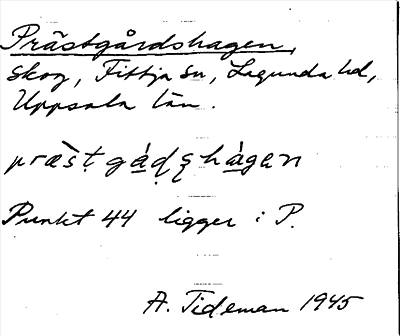 Prästgårdshagen,
skog, Fittja sn, Lagunda hd,
Uppsala län.
præ̀sṭgádʂhàgen
Punkt 44 ligger i P.
A. Tideman 1945